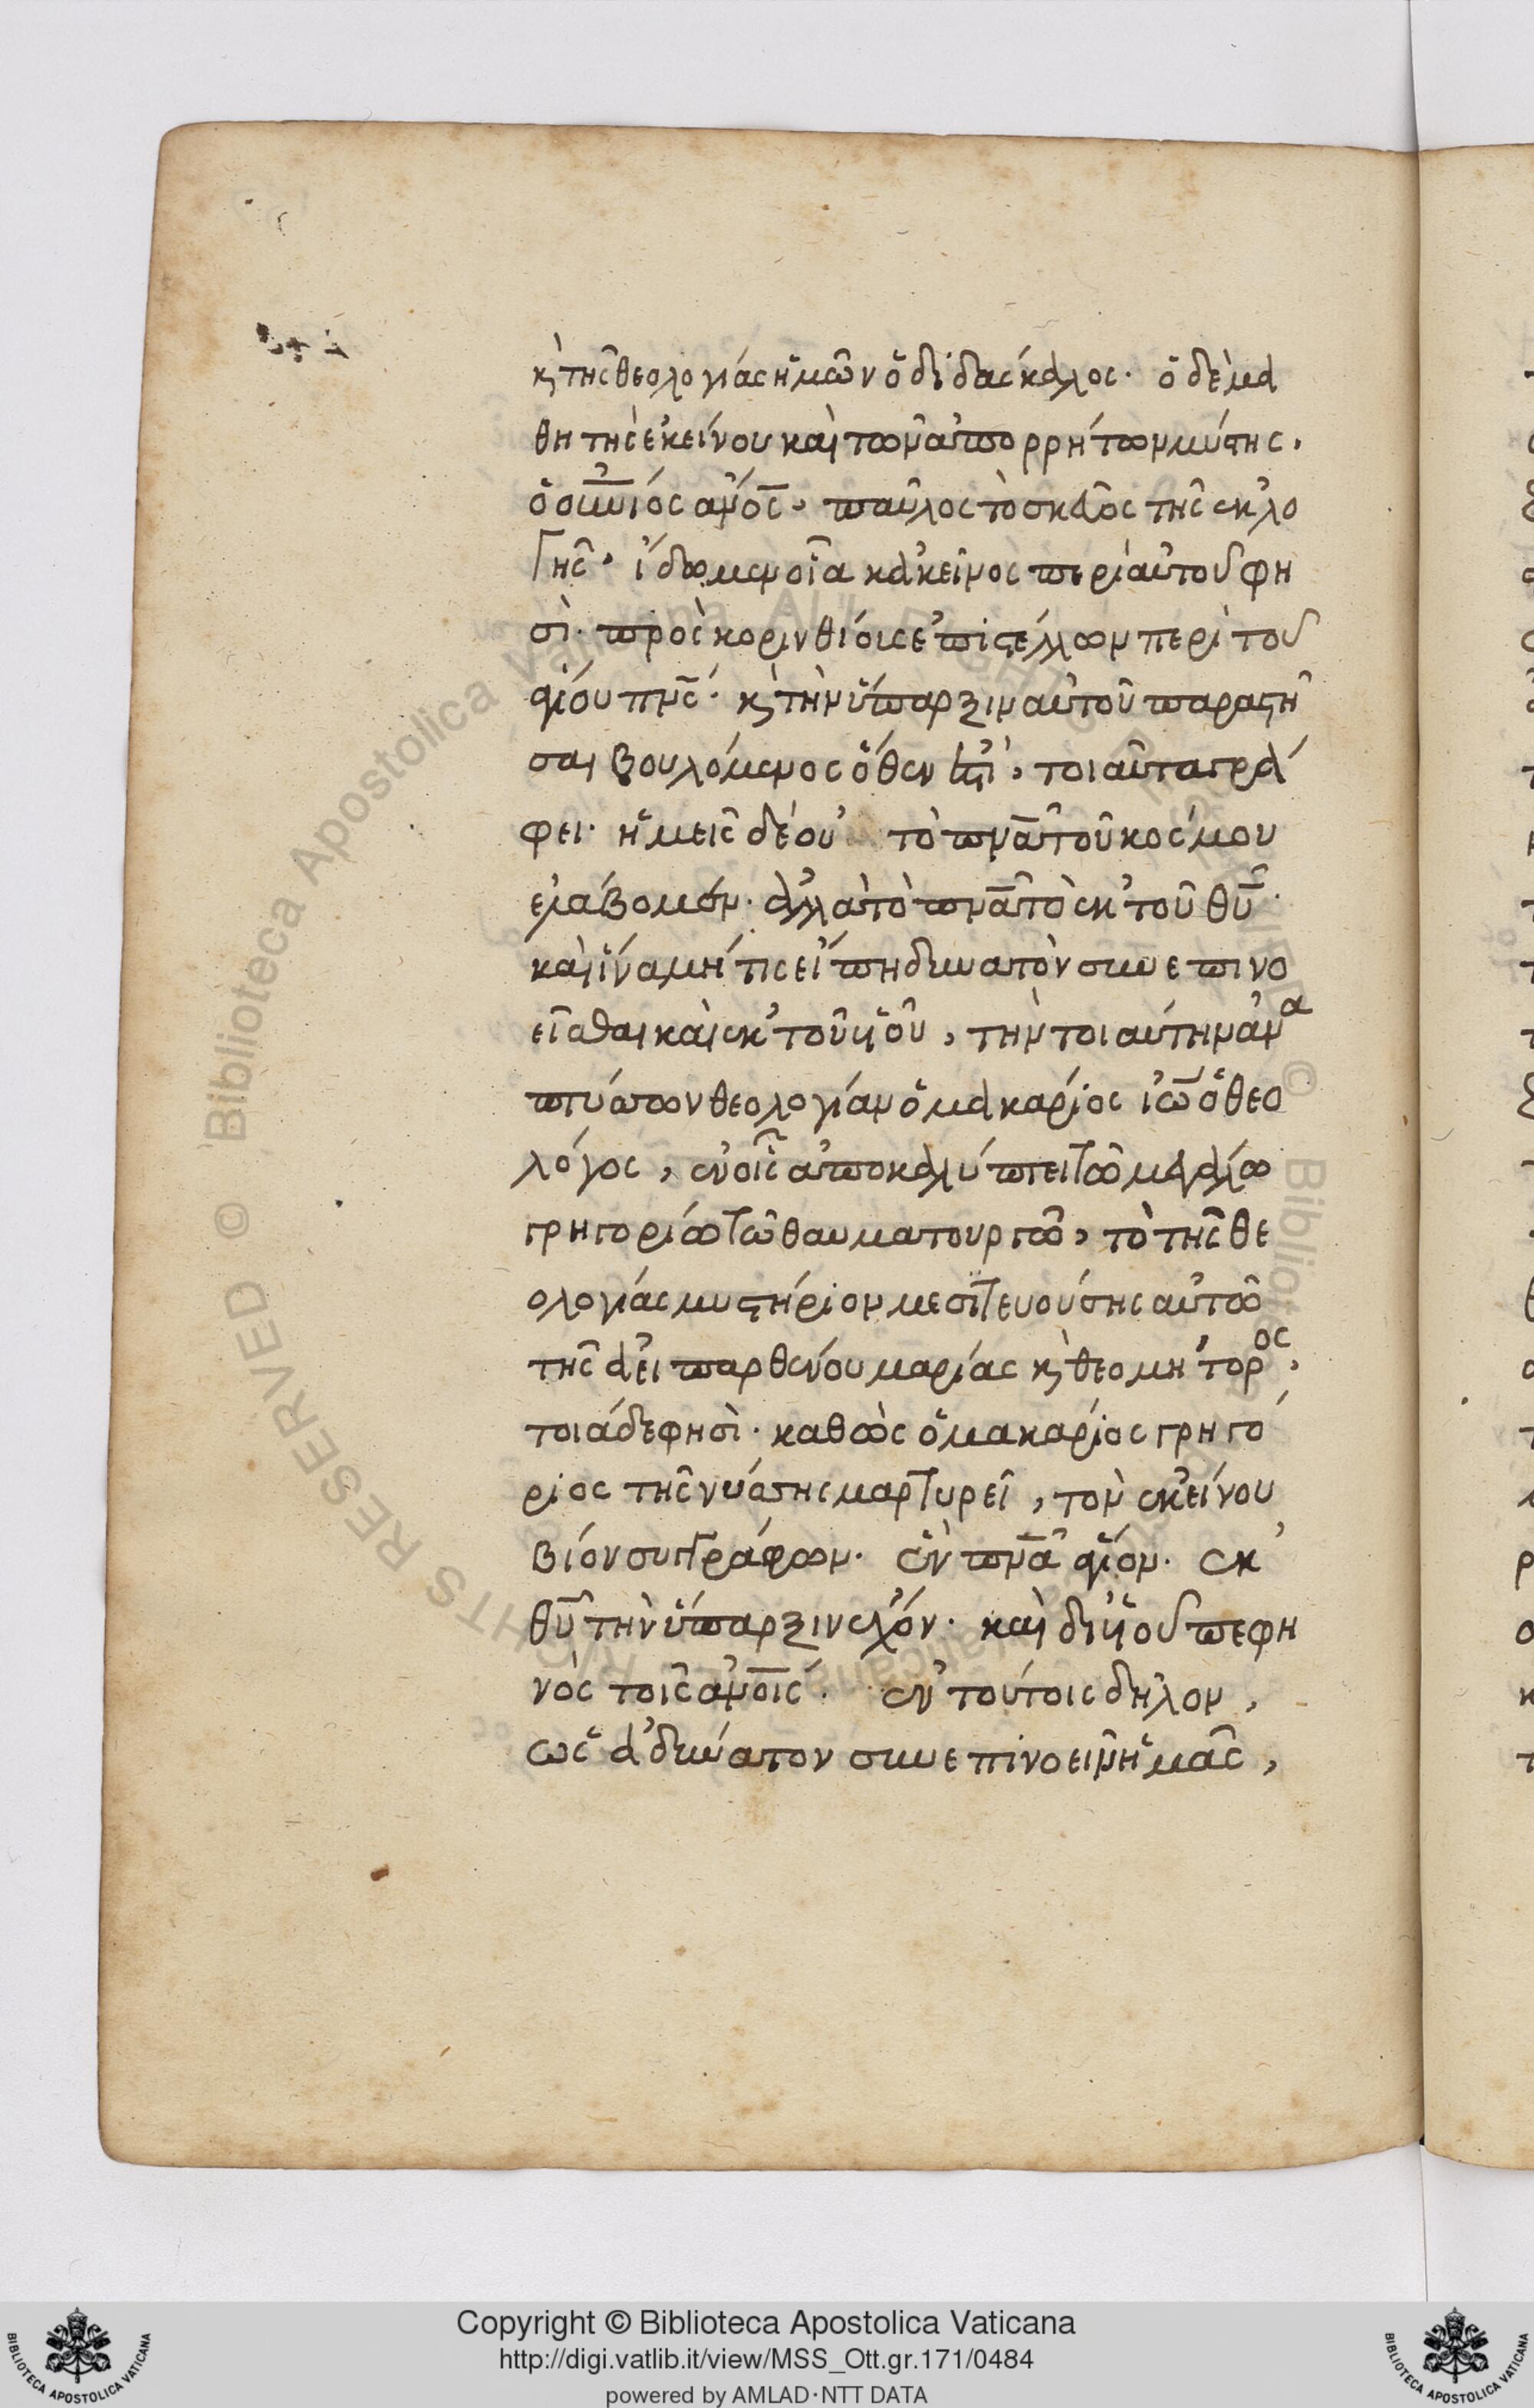 κ̀ τῆς θεολογίας ἡμῶν ὁ διδάσκαλος · ὁ δὲ μα
θητὴς ἐκείνου καὶ τῶν ἀπορρήτων μύστης ,
ὁ οὐνιός ἀνο̅ς , παῦλος τὸ σκεῦος τῆς ἐκλο
γῆς · ἴδωμεν οἷα κἀκεῖνος περὶ αὐτοῦ φη
σὶ · πρὸς κορινθίοις ἐπιστέλλων περὶ τοῦ
ἁγίου πν̅ς · κ̀ τὴν ὕπαρξιν αὐτοῦ παραστῆ
σαι βουλόμενος ὅθεν ἐστὶ , τοιαῦτα γρά
φει · ἡμεῖς δὲ οὐ τὸ πν̅α τοῦ κόσμου
ἐλάβομεν · ἀλλὰ τὸ πν̅α τὸ ἐκ τοῦ θυ̅ ·
καὶ ἵνα μή τις εἴπῃ δυνατὸν συνεπινο
εῖσθαι καὶ ἐκ τοῦ υἱοῦ , τὴν τοιαύτην ἀνα
πτύσσων θεολογίαν ὁ μακάριος ἰω̅ ὁ θεο
λόγος , ἐν οἷς ἀποκαλύπτει τῶ μεγάλω
γρηγορίω τῶ θαυματουργῶ , τὸ τῆς θε
ολογίας μυστήριον μεσιτευούσης αὐτῶ
τῆς ἀεὶ παρθένου μαρίας κ̀ θεομήτορος ,
τοιάδε φησὶ · καθὼς ὁ μακάριος γρηγό
ριος τῆς νύσσης μαρτυρεῖ , τὸν ἐκείνου
βίον συγγράφων · ἓν πν̅α ἅγιον · ἐκ
θυ̅ τὴν ὕπαρξιν ἔχον · καὶ δι υἱοῦ πεφη
νὸς τοῖς ἀνο̅ις · ἐν τούτοις δῆλον ,
ὡς ἀδύνατον συνεπινοεῖν ἡμᾶς ,
Copyright © Biblioteca Apostolica Vaticana
http://digi.vatlib.it/view/MSS_Ott.gr.171/0484
powered by AMLAD·NTT DATA